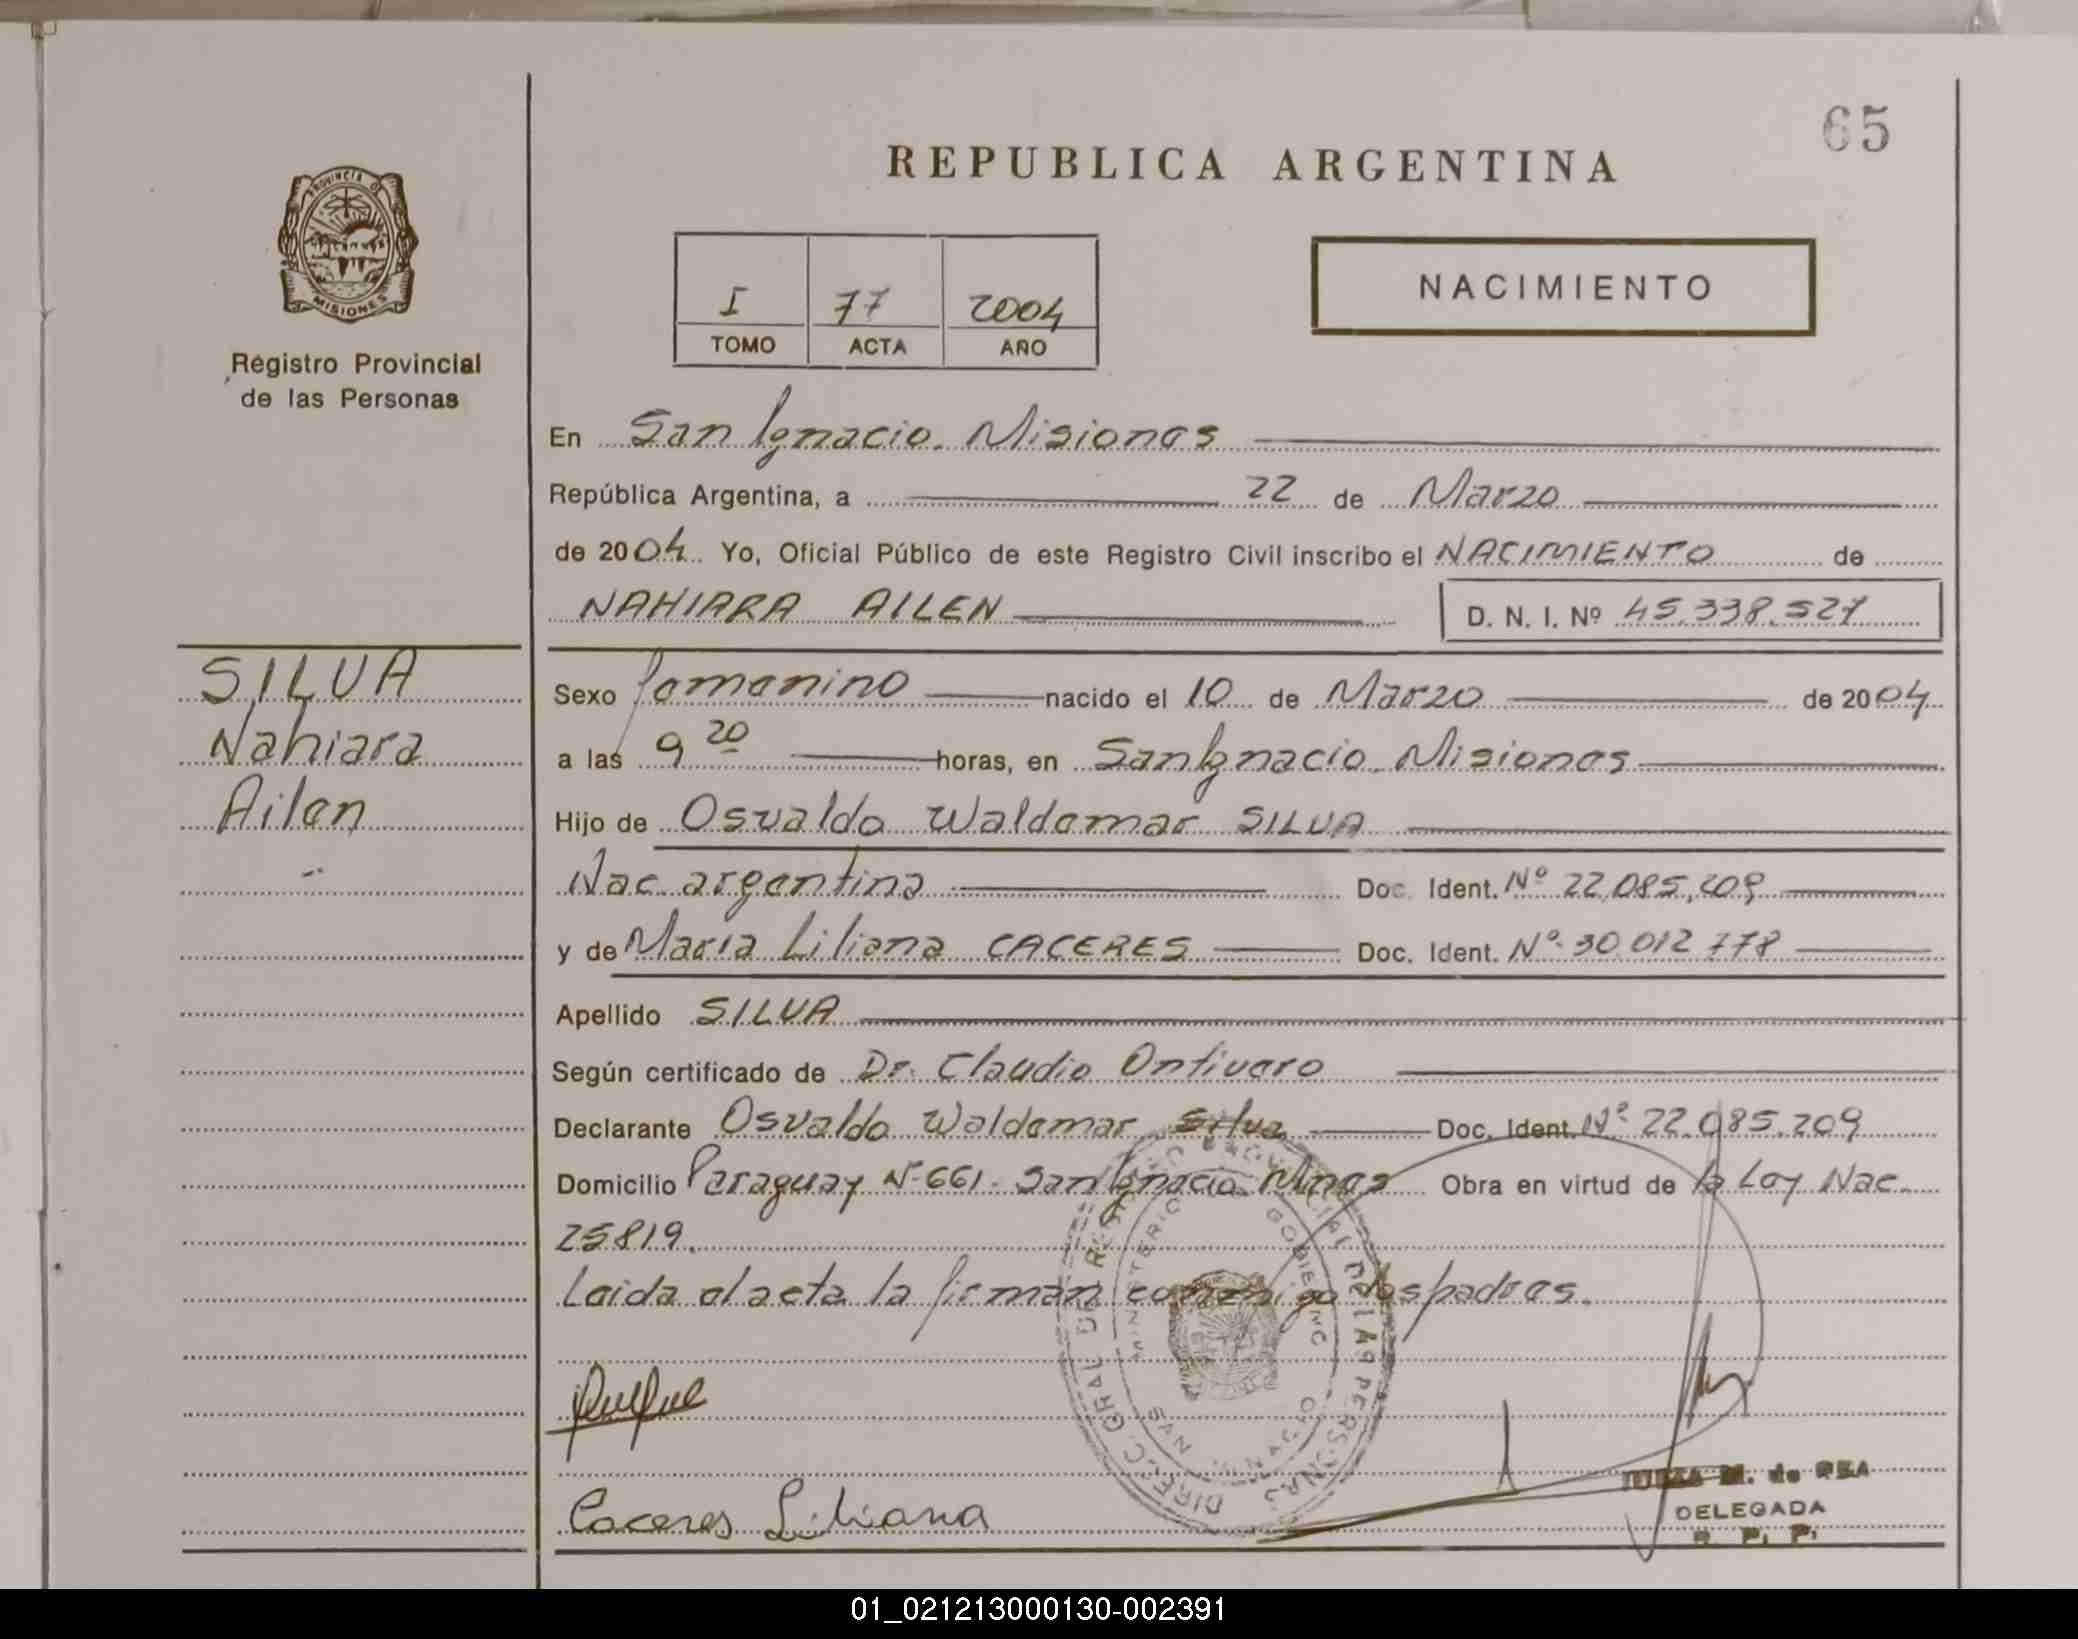 65
REPUBLICA ARGENTINA
PROVINCIA DE
MISIONES
I 77 2004
TOMO ACTA AÑO
NACIMIENTO
Registro Provincial
de las Personas
En San Ignacio. Misiones
República Argentina, a 22 de Marzo
de 2004. Yo, Oficial Público de este Registro Civil inscribo el NACIMIENTO de
NAHIARA AILEN D. N. I. Nº 45.338.527
SILVA
Nahiara
Ailen
Sexo femenino nacido el 10 de Marzo de 2004
a las 9 20 horas, en San Ignacio. Misiones
Hijo de Osvaldo Waldemar SILVA
Nac. argentina Doc. Ident. Nº 22.085.209
y de Maria Liliana CACERES Doc. Ident. Nº 30.012.778
Apellido SILVA
Según certificado de Dr. Claudio Ontivero
Declarante Osvaldo Waldemar Silva Doc. Ident. Nº 22.085.209
Domicilio Paraguay Nº 661. San Ignacio Mnes Obra en virtud de la Ley Nac.
25819.
Leida el acta la firman conmigo los padres.
DIREC. GRAL. DEL REGISTRO PROVINCIAL DE LAS PERSONAS
MINISTERIO GOBIERNO
SAN IGNACIO
Caceres Liliana
M. de REA
DELEGADA
R. P. P.
01_021213000130-002391